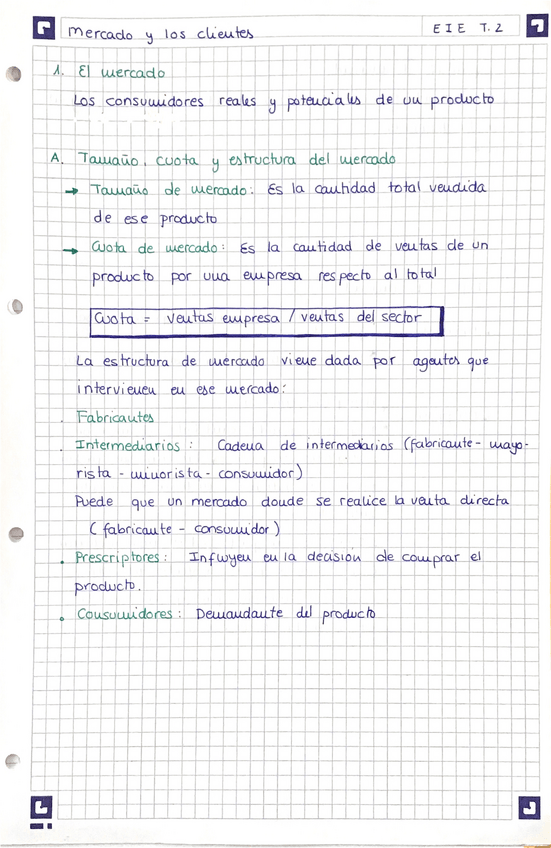 Mercado y los clientes
EIE T.2
1. El mercado
Los consumidores reales y potenciales de un producto
A. Tamaño, cuota y estructura del mercado
→ Tamaño de mercado: Es la cantidad total vendida
de ese producto
→ Cuota de mercado: Es la cantidad de ventas de un
producto por una empresa respecto al total
Cuota = ventas empresa / ventas del sector
La estructura de mercado viene dada por agentes que
intervienen en ese mercado:
. Fabricantes
. Intermediarios: Cadena de intermediarios (fabricante - mayo-
rista - minorista - consumidor)
Puede que un mercado donde se realice la venta directa
(fabricante - consumidor)
. Prescriptores: Influyen en la decisión de comprar el
producto.
. Consumidores: Demandante del producto